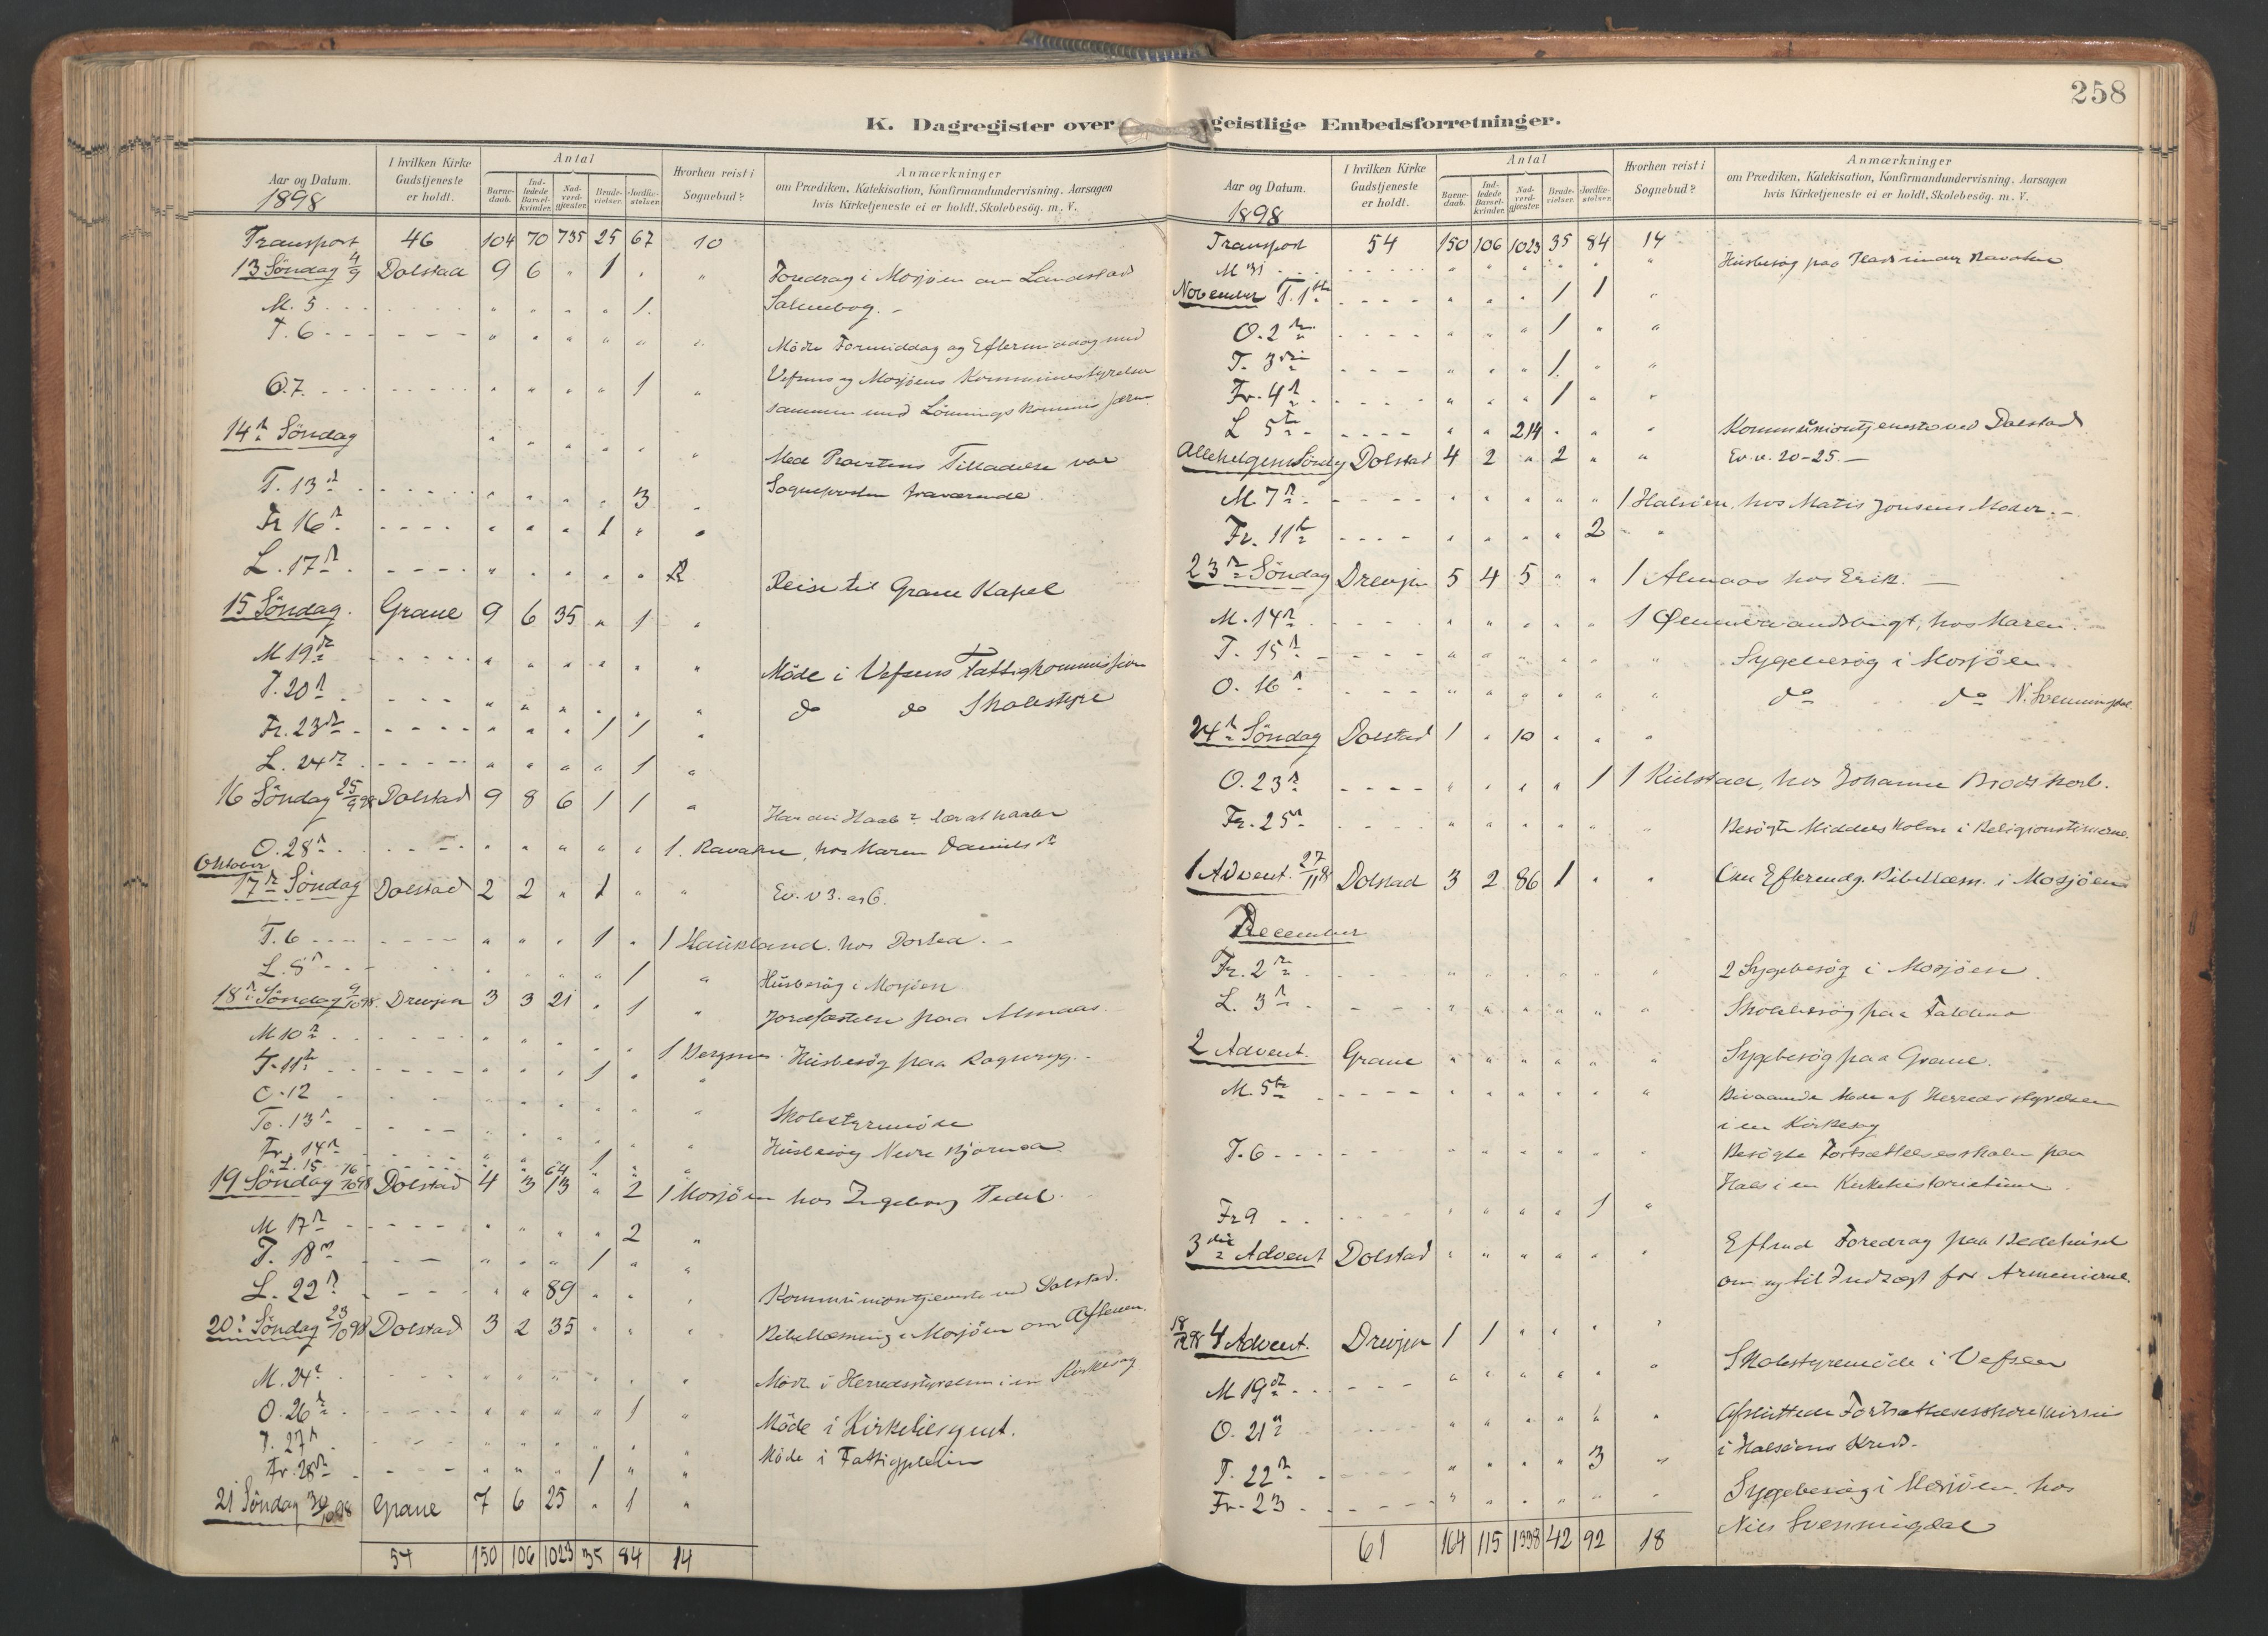 258
K. Dagregister over geistlige Embedsforretninger.
Aar og Datum. 1898
I hvilken Kirke Gudstjeneste er holdt.
Antal
Barnedaab.
Indledede Barselkvinder.
Nadverdgjester.
Brudevielser.
Jordfæstelser.
Hvorhen reist i Sognebud?
Anmærkninger
om Prædiken, Katekisation, Konfirmandundervisning. Aarsagen
hvis Kirketjeneste ei er holdt, Skolebesög. m. V.
Transport 46 104 70 735 25 67 10
13 Söndag 4/9 Dolstad 9 6 " 1 " " Foredrag i Mosjöen om Landstads
M. 5 1 Salmebog. -
T. 6 Möde Formiddag og Eftermiddag med
O. 7. 1 Vefsens og Mosjöens Kommunestyrelse
sammen med Lönnings
14de Söndag
Med Provstens Tilladelse var
T. 13de 3 Sognepresten fraværende
Fr 16de 1
L. 17de Reise til Grane Kapel
15 Söndag. Grane 9 6 35 " 1 "
M 19de Möde i Vefsens Fattigkommission
T. 20de do do Skolestyre
Fr. 23de 1 1
L. 24de 1
16 Söndag 25/9 98 Dolstad 9 8 6 1 1 "
O. 28de 1. Ravatn, hos Maren Daniels
Oktober
17de Söndag Dolstad 2 2 " 1 " " Ev. v 3. og 6.
T. 6 1 " 1 Haukland. hos
L. 8de 1 " Husbesög i Mosjöen
18de Söndag 9/10 98. Drevjen 3 3 21 " 1 " Jordfæstelse paa Almaas
M 10de 1 Husbesög paa
T. 11te 1
O. 12
To. 13de Skolestyremöde
Fr. 14de 1 Husbesög Nedre Bjornaa
L. 15 64
19 Söndag 16/10 98 Dolstad 4 3 13 " 2 1 Mosjöen hos Ingeborg
M 17de 2
T. 18de 1
L. 22de 89 Kommuniontjeneste ved Dolstad.
20de Söndag 23/10 98 Dolstad 3 2 35 Bibellæsning i Mosjöen om Aftenen.
M. 24de Möde i Herredsstyrelsen i en Kirkesag
O. 26de 1 Möde i Kirketilsynet.
T. 27de Möde i Fattigplein
Fr. 28de 1
21 Söndag 30/10 98 Grane 7 6 25 " 1 "
54 150 106 1023 35 84 14
Aar og Datum. 1898
I hvilken Kirke Gudstjeneste er holdt.
Antal
Barnedaab.
Indledede Barselkvinder.
Nadverdgjester.
Brudevielser.
Jordfæstelser.
Hvorhen reist i Sognebud?
Anmærkninger
om Prædiken, Katekisation, Konfirmandundervisning, Aarsagen
hvis Kirketjeneste ei er holdt, Skolebesög. m. V.
Transport 54 150 106 1023 35 84 14
M 31 Husbesög paa
November T. 1ste 1 1
O. 2den 1
T. 3die 1
Fr. 4de 1
L 5te 214 Kommuniontjeneste ved Dolstad
Allehelgens Söndg Dolstad 4 2 " 2 " " Ev. v. 20-25. -
M. 7de 1 Halsöen, hos Matis Jonsens Moder. -
Fr. 11te 2
23de Söndag Drevjen 5 4 5 " " 1 Almaas hos Erik. -
M. 14de 1 hos Maren.
T. 15de Sygebesög i Mosjöen
O. 16de do do N. Svenningdal
24de Söndag Dolstad 1 " 10 " " "
O. 23de 1 1 Kulstad, hos Johanne
Fr. 25de Besögte Middelskolen i Religionstimerne.
1 Advent. 27/11 98 Dolstad 3 2 86 1 " " Om Eftermdg. Bibellæsn. i Mosjöen
December
Fr. 2den 2 Sygebesög i Mosjöen
L. 3die Skolebesög paa
2 Advent. Grane Sygebesög paa Grane.
M. 5te Bivaanede Möde af Herredsstyrelsen
i en Kirkesag
T. 6 Besögte Fortsættelsesskolen paa
Hals i en Kirkehistorietime
Fr 9 1
3die Advent Dolstad Eftmd Foredrag paa Bedehuset
om og til Indtægt for Armenierne.
18/12 98 4 Advent. Drevjen 1 1
M 19de Skolestyremöde i Vefsen
O. 21de Afsluttede Fortsættelsesskole
i Halsöens Kreds.
T. 22de 3
Fr. 23 Sygebesög i Mosjöen hos
Nils Svenningdal
61 164 115 1338 42 92 18